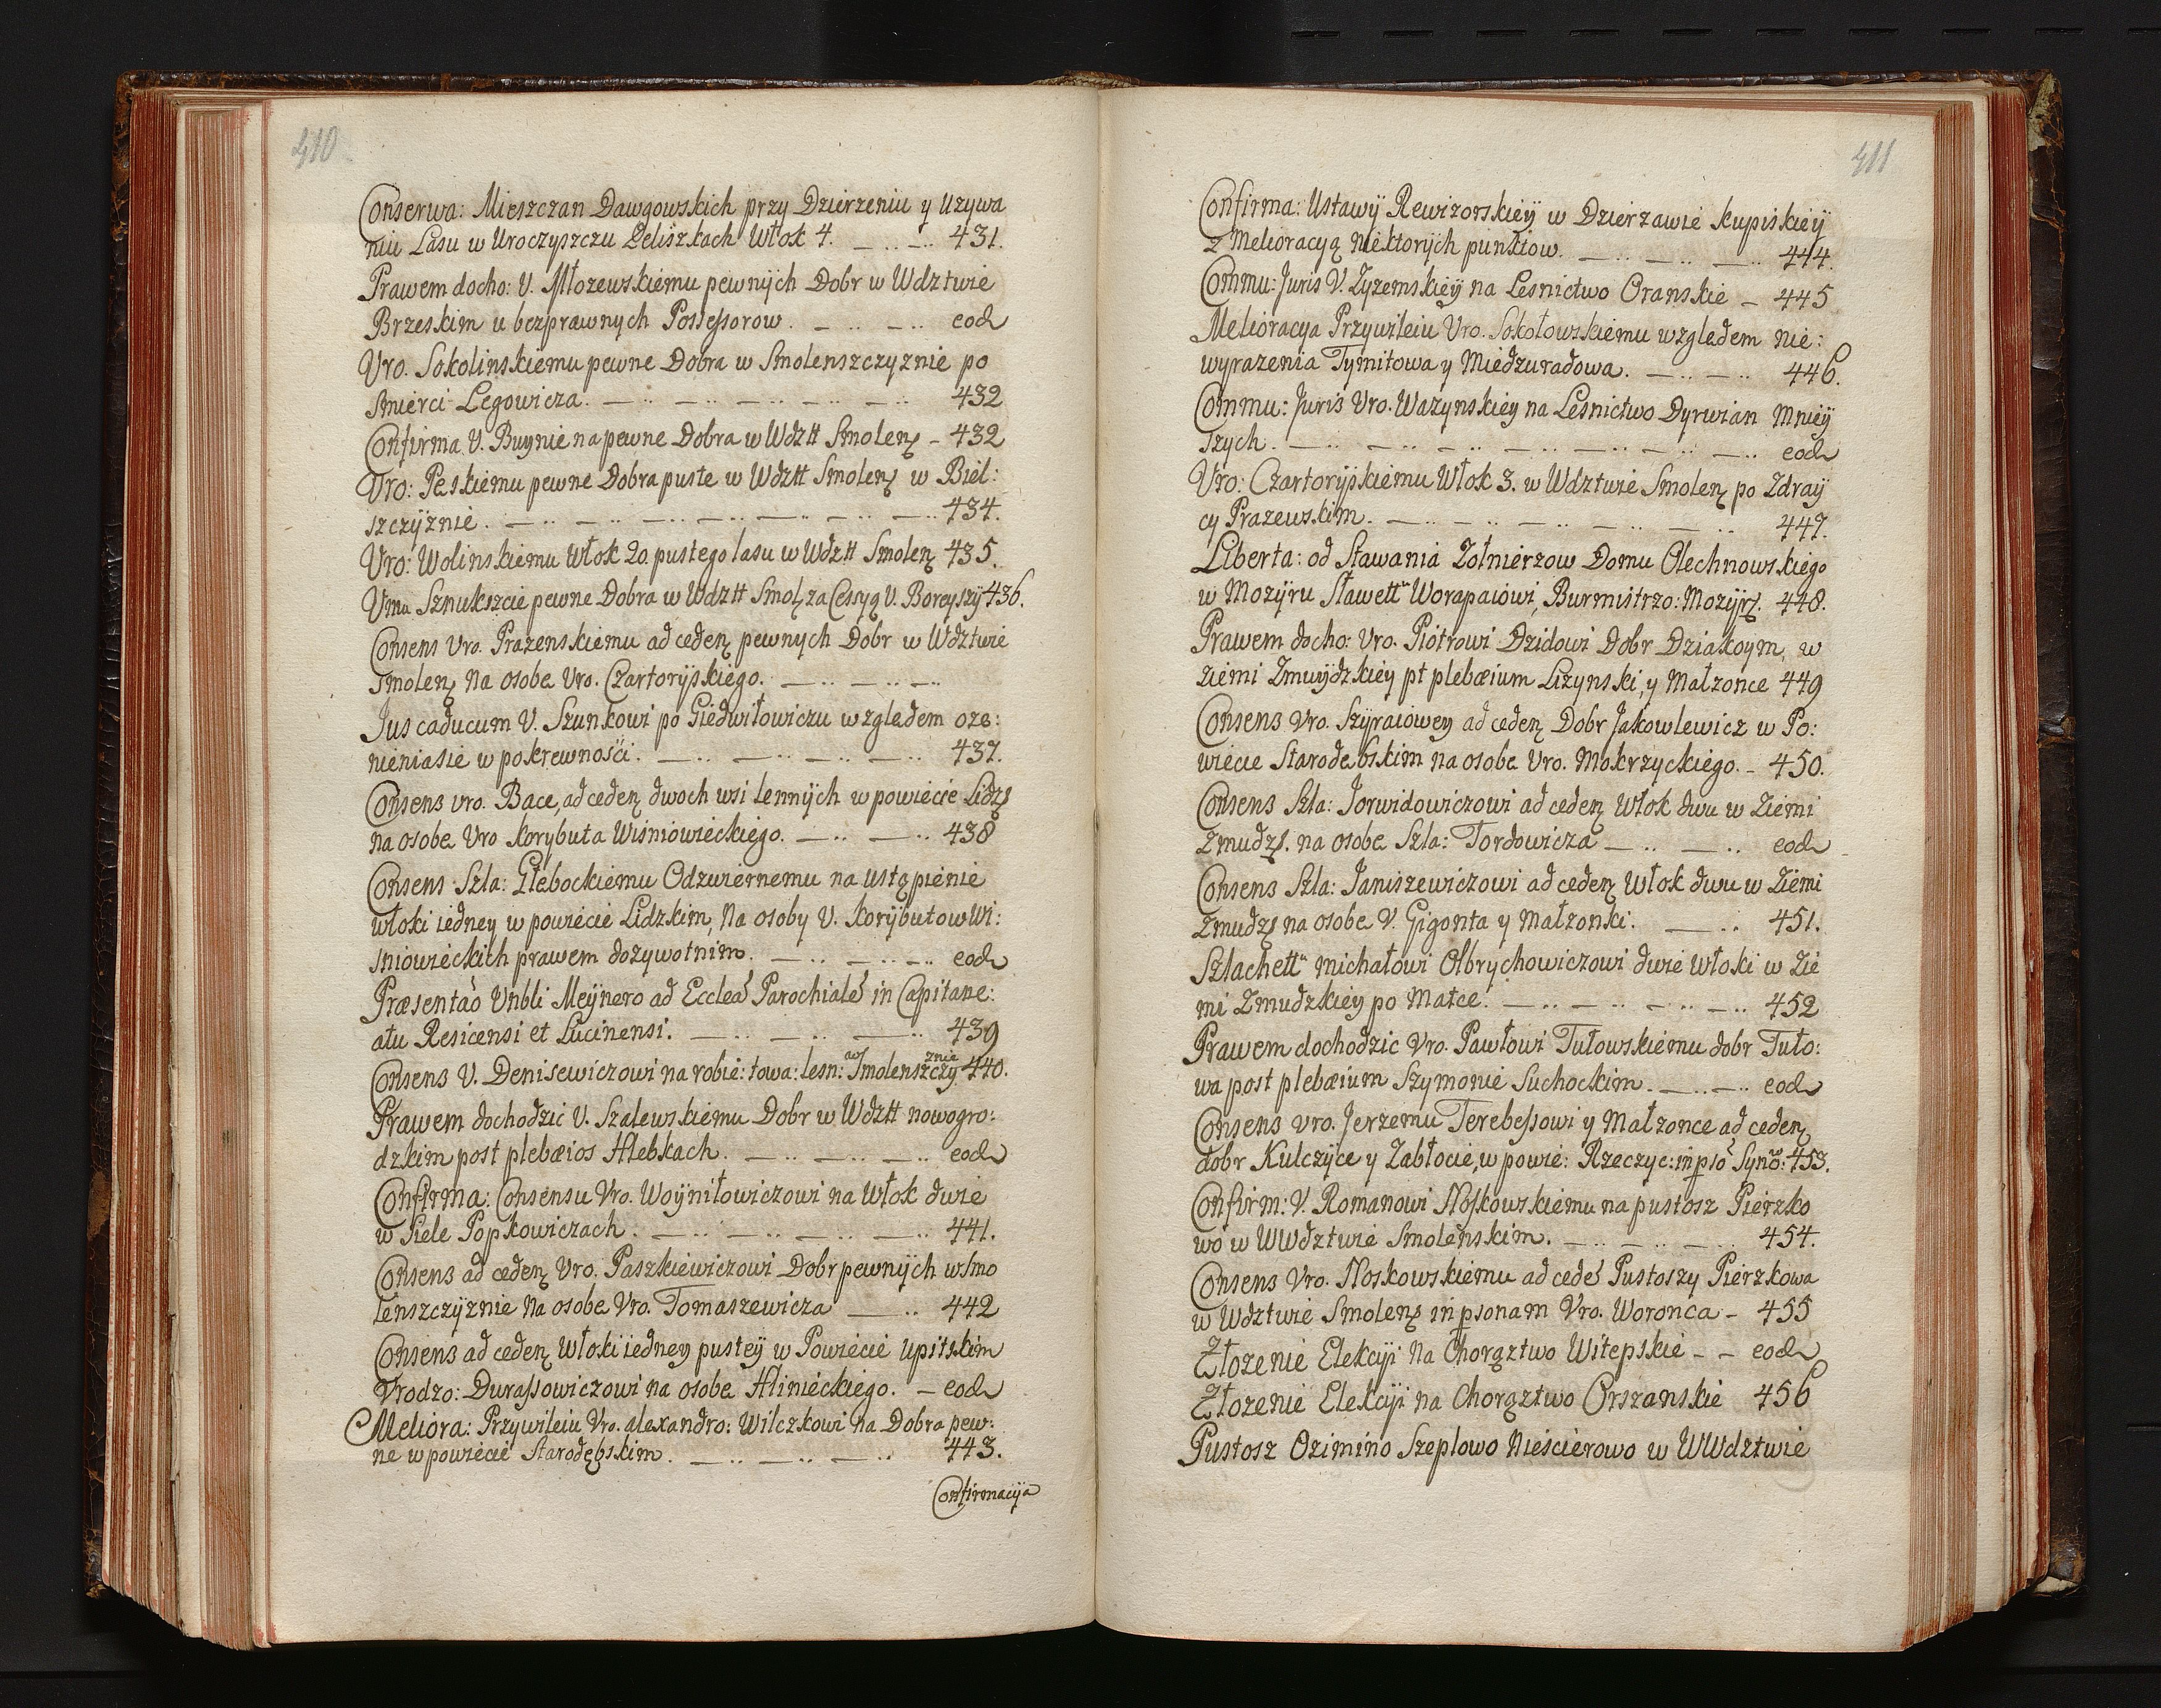 410
Conserwa: Mieszczan Dawgowskich przy Dzierzeniu y Uzywa
niu Lasu w Uroczyszczu Peliszkach Włok 4. — .. — .. 431.
Prawem docho: V. Młozewskiemu pewnÿch Dobr w Wdztwie
Brzeskim u bezprawnych Possessorow. — .. — .. eod
Vro. Sokolinskiemu pewne Dobra w Smolenszczyznie po
Smierci Legowicza. — .. — .. — .. — .. — .. 432
Confirma V. Buynie na pewne Dobra w Wdztt Smolen — 432
Vro: Peskiemu pewne Dobra puste w Wdztt Smolen w Biel:
szczÿznie. — .. — .. — .. — .. — .. — .. — .. 434.
Vro: Wolinskiemu Włok 20. pustego lasu w Wdztt Smolen 435.
Vmu Sznukszcie pewne Dobra w Wdztt Smol za Cessyą V. Boreyszÿ 436.
Consens Vro. Prazenskiemu ad ceden pewnych Dobr w Wdztwie
Smolen Na osobe Vro. Czartorÿskiego. — .. — .. — ..
Jus caducum V. Szunkowi po Giedwiłowiczu względem oze:
nieniasie w pokrewnosci. — .. — .. — .. — .. 437.
Consens vro. Bace, ad ceden dwoch wsi lennÿch w powiecie Lidz
na osobe Vro Korybuta Wisniowieckiego. — .. — .. 438
Consens Szla: Głebockiemu Odzwiernemu na ustąpienie
włoki iedney w powiecie Lidzkim, Na osoby V. Korÿbutow Wi:
sniowieckich prawem dozywotnim. — .. — .. — .. eod
Præsentao Vnbli Meÿnero ad Ecclea Parochiale in Capitane:
atu Resicensi et Lucinensi. — .. — .. — .. 439
Consens V. Denisewiczowi na robie: towa: lesn: aw Smolenszczyznie 440.
Prawem dochodzic V. Szalewskiemu Dobr w Wdztt nowogro:
dzkim post plebæios Hlebkach. — .. — .. — .. eod
Confirma: Consensu Vro. Woÿniłowiczowi na Włok dwie
w Siele Popkowiczach. — .. — .. — .. — .. 441.
Consens ad ceden Vro. Paszkiewiczowi Dobr pewnÿch w Smo
lenszczÿznie Na osobe Vro. Tomaszewicza — .. 442
Consens ad ceden Włoki iedney pustey w Powiecie Upitskim
Vrodzo: Durassowiczowi na osobe Hlinieckiego. — eod
Meliora: Przywileiu Vro. alexandro: Wilczkowi Na Dobra pew:
ne w powiecie Starodębskim. — .. — .. — .. 443.
Confirmacÿa
411
Confirma: Ustawÿ Rewizorskieÿ w Dzierzawie kupiskieÿ
z Melioracyą niektorÿch punktow. — .. — .. — .. 444.
Commu: Juris V. Zyzemskieÿ na Lesnictwo Oranskie — 445
Melioracya Przywileiu Vro. Sokołowskiemu względem nie:
wyrazenia Tymitowa y Miedzuradowa. — .. — .. 446.
Commu: Juris Vro. Wazynskiey na Lesnictwo Dyrwian Mnieÿ
szych. — .. — .. — .. — .. — .. — .. — .. eod
Vro: Czartorÿskiemu Włok 3. w Wdztwie Smolen po Zdraÿ
cy Prazewskim. — .. — .. — .. — .. — .. 447.
Liberta: od Stawania Zołnierzow Domu Olechnowskiego
w Mozÿru Sławett Worapaiowi, Burmistrzo: Mozÿrz. 448.
Prawem docho: Vro. Piotrowi Dzidowi Dobr Dziakoym, w
ziemi Zmuÿdzkiey pt plebæium Lizynski, y Małzonce 449
Consens Vro. Szÿraiowey ad ceden Dobr Jakowlewicz w Po:
wiecie Starodebskim na osobe Vro. Mokrzyckiego. — 450.
Consens Szla: Jorwidowiczowi ad ceden Włok dwu w Ziemi
Zmudz. na osobe Szla: Tordowicza — .. — .. eod
Consens Szla: Janiszewiczowi ad ceden Włok dwu w Ziemi
Zmudz na osobe V. Gigonta y Małzonki. — .. 451.
Szlachett Michałowi Olbrychowiczowi dwie włoki w Zie
mi Zmudzkiey po Matce. — .. — .. — .. — .. 452
Prawem dochodzic Vro. Pawłowi Tułowskiemu dobr Tuło:
wa post plebæium Szymonie Suchockim. — .. — .. eod
Consens vro. Jerzemu Terebessowi y Małzonce ad ceden
dobr Kulczÿce y Zabłocie, w powie: Rzeczyc: in pso Syno: 453.
Confirm: V. Romanowi Noskowskiemu na pustosz Pierzko
wo w WWdztwie Smolenskim. — .. — .. — .. 454.
Consens Vro. Noskowskiemu ad cede Pustoszy Pierzkowa
w Wdztwie Smolens in psonam Vro. Woronca — 455
Złozenie Elekcÿi Na Chorąztwo Witepskie — — eod
Złozenie Elekcÿi na Chorąztwo Orszanskie 456
Pustosz Ozimino Szeplowo Niescierowo w WWdztwie